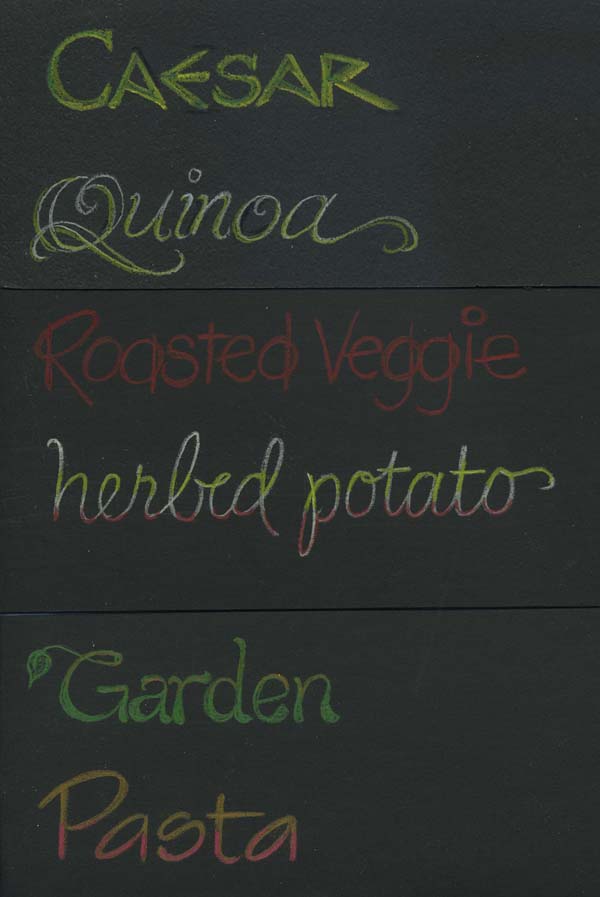 CAESAR
Quinoa
Roasted Veggie
herbed potato
Garden
Pasta